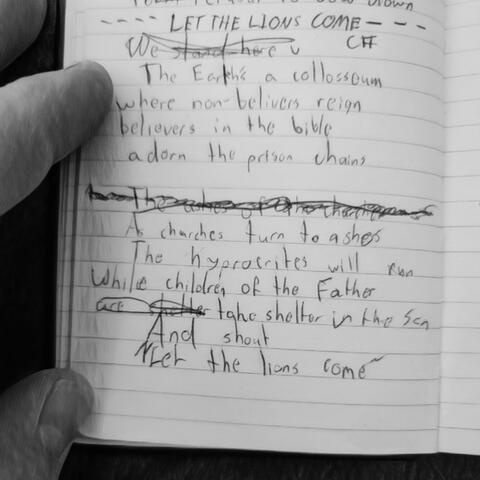 - - - - LET THE LIONS COME - - -
We stand here C#
The Earth's a collosseum
where non-belivers reign
believers in the bible
adorn the prison chains
The ashes of
As churches turn to ashes
The hyprocrites will run
While children of the Father
are take shelter in the Son
And shout
"Let the lions come"